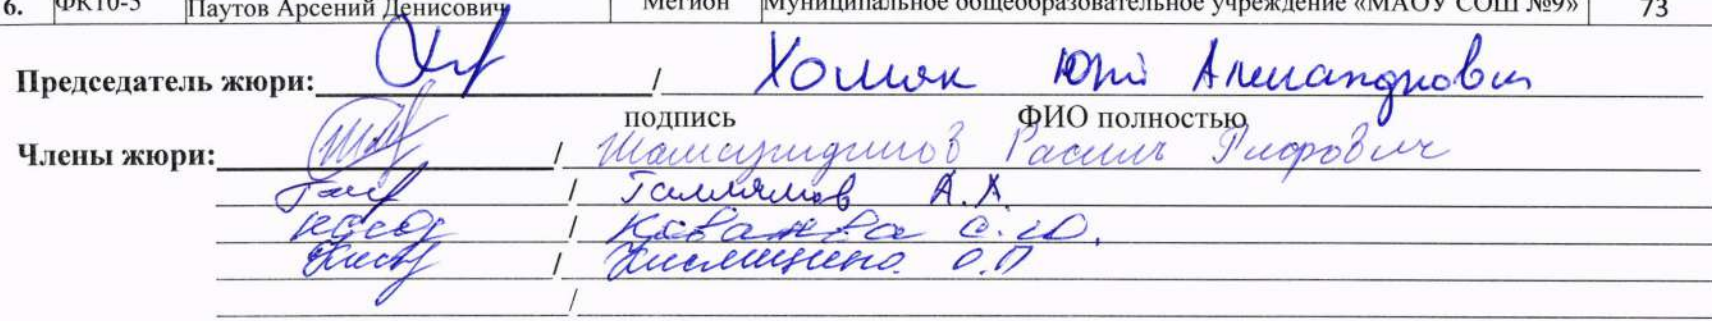 6. ФК10-5 Паутов Арсений Денисович Мегион Муниципальное общеобразовательное учреждение «МАОУ СОШ №9» 73
Председатель жюри: / Хомяк Юрий Александрович
подпись ФИО полностью
Члены жюри: / Шамсутдинов Расиль
/ Галлямов А.Х.
/ С.Ю.
/ О.П
/